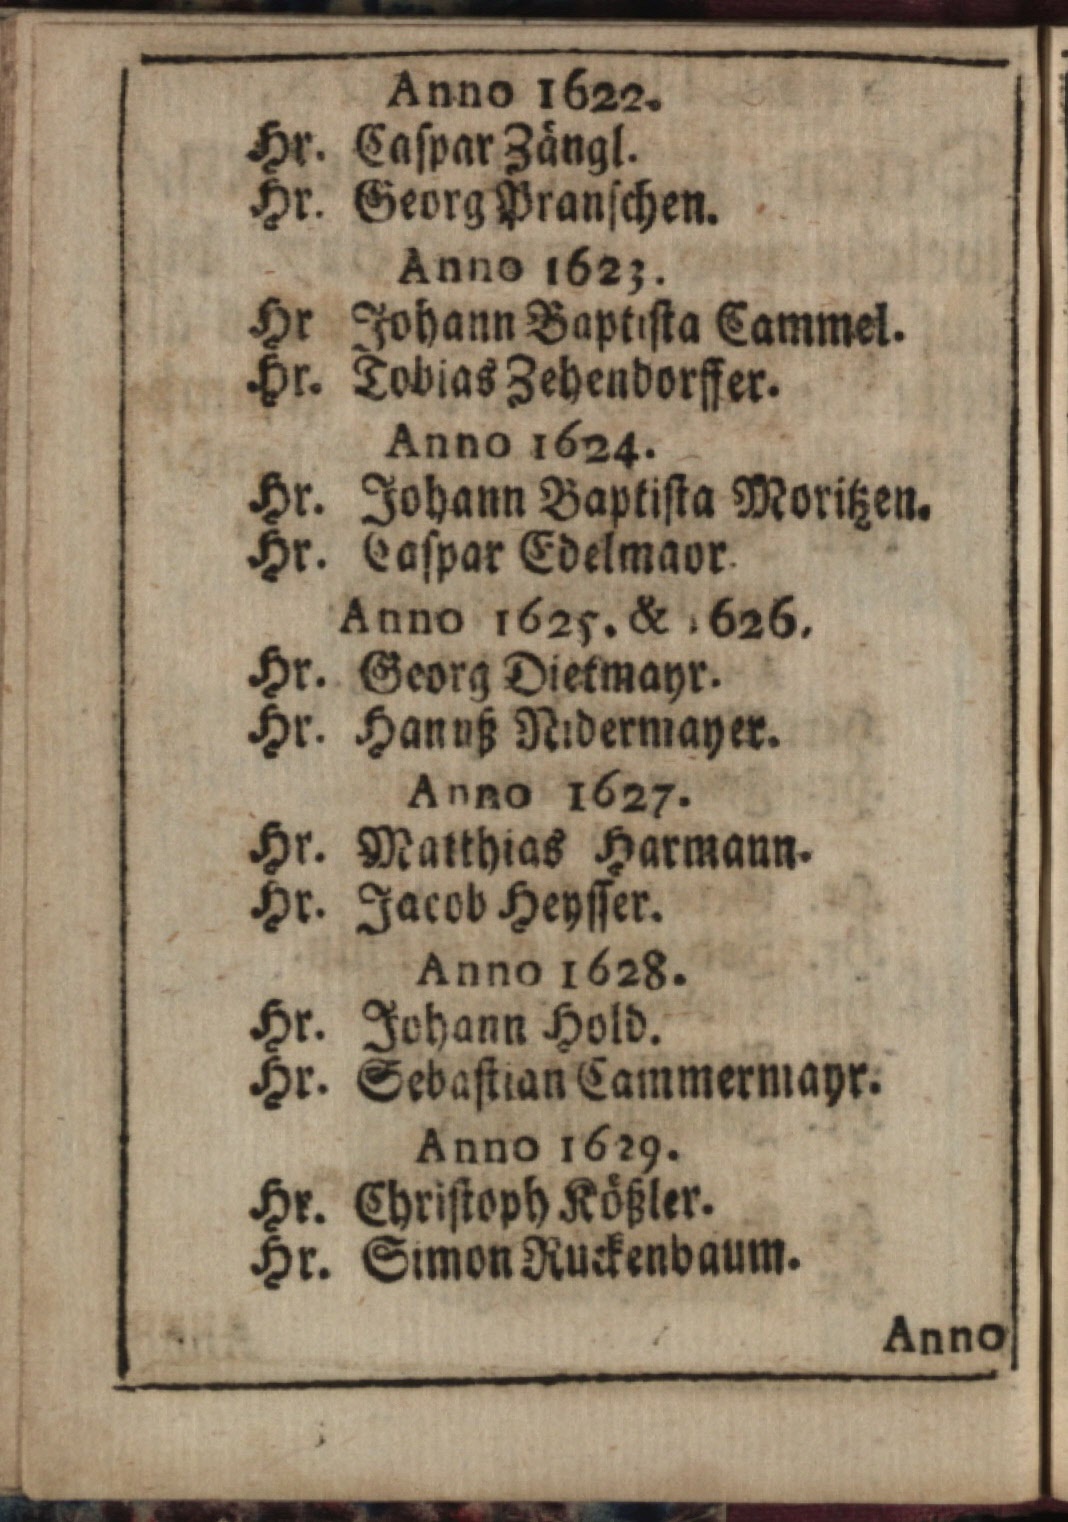 Anno 1622.
Hr. Caſpar Zängl.
Hr. Georg Pranſchen.
Anno 1623.
Hr Johann Baptiſta Cammel.
Hr. Tobias Zehendorffer.
Anno 1624.
Hr. Johann Baptiſta Moritzen.
Hr. Caſpar Edelmaor.
Anno 1625. & 1626.
Hr. Georg Dietmayr.
Hr. Hannß Nidermayer.
Anno 1627.
Hr. Matthias Harmann.
Hr. Jacob Heyſſer.
Anno 1628.
Hr. Johann Hold.
Hr. Sebaſtian Cammermayr.
Anno 1629.
Hr. Chriſtoph Kößler.
Hr. Simon Ruckenbaum.
Anno